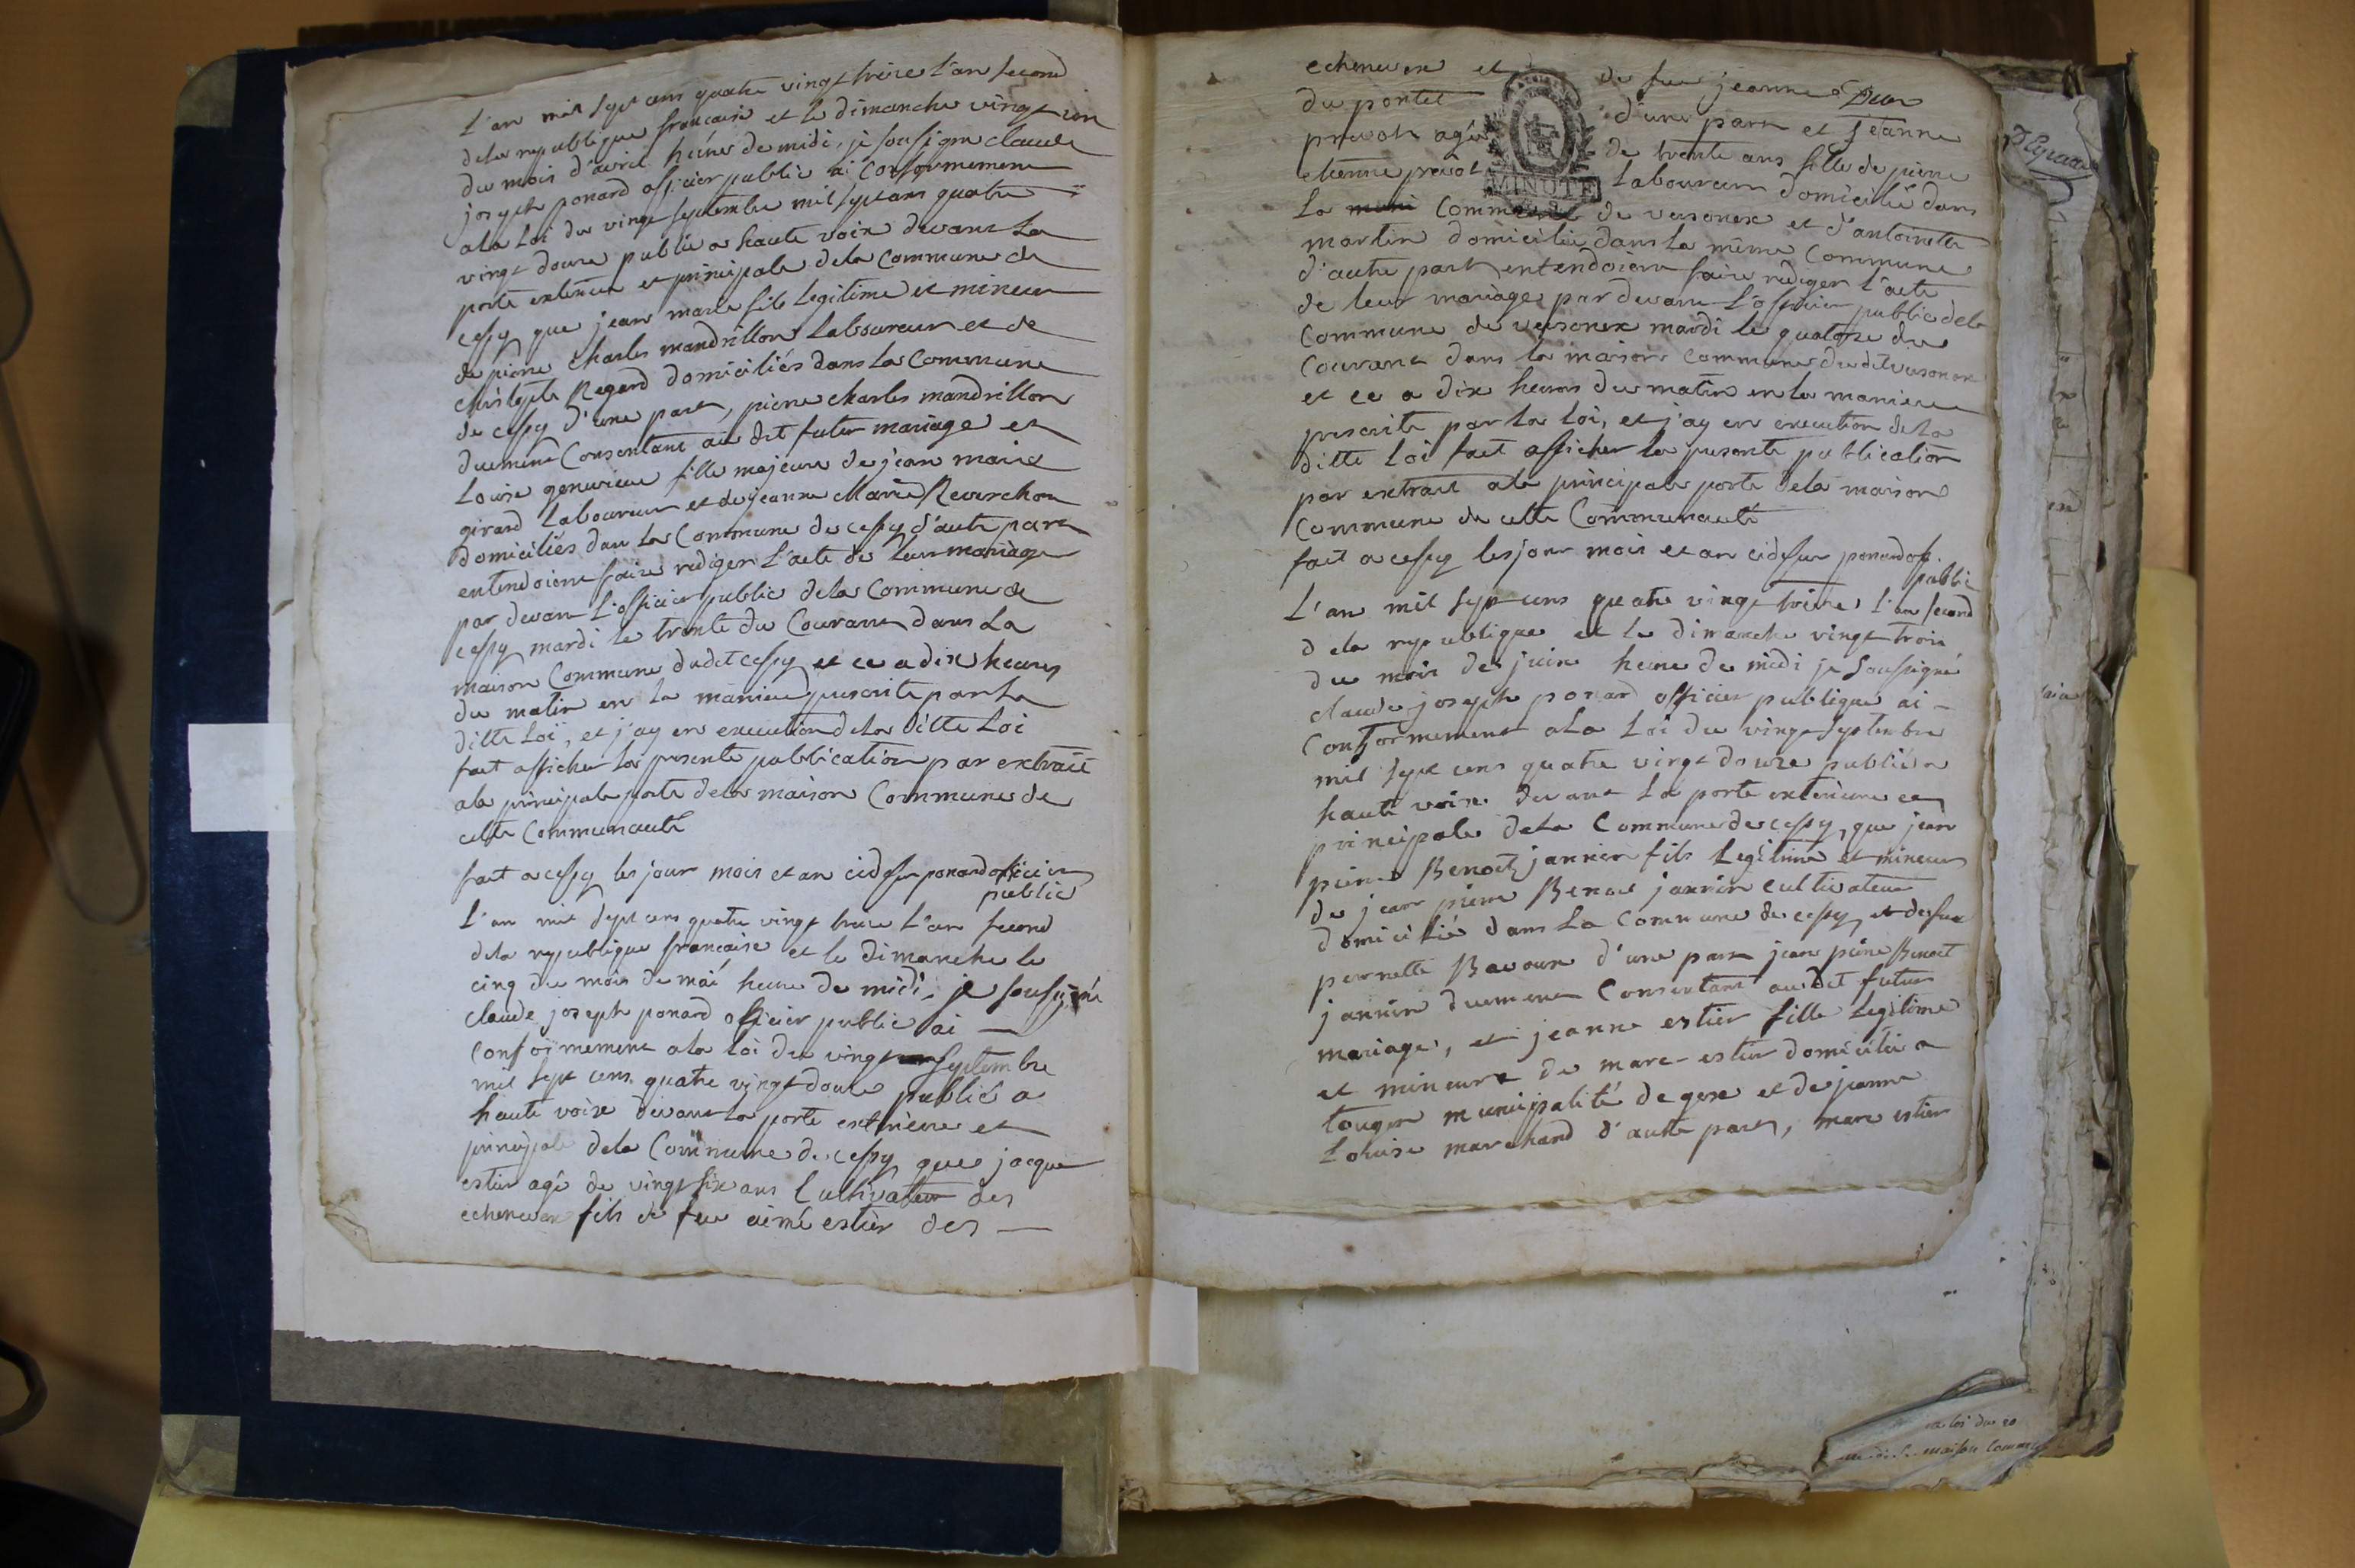 L'an mil sept cens quatre vingt treize l'an second
dela republique francaise et le dimanche vingt un
du mois d'avril heure de midi, je soussigne claude
joseph ponard officier public ai conformement
ala loi du vingt septembre mil sept cens quatre =
vingt douze publié a haute voix devant la
porte exterieure et principale dela commune de
cessy que jean marie fils legitime et mineur
de pierre charles mandrillon laboureur et de
Regard domiciliés dans la commune
de cessy d'une part, pierre charles mandrillon
duement consentant au dit futur mariage et
Louise genevieve fille majeure de jean marie
girard laboureur et de jeanne Marie Reverchon
domiciliés dans la commune de cessy d'autre part
entendoient faire rediger l'acte de leur mariage
par devant l'officier public dela commune de
cessy mardi le trente du courant dans la
maison commune dudet cessy et ce a dix heures
du matin en la maniere prescrite par la
ditte loi, et j'ay en execution dela ditte loi
fait afficher la presente publication par extrait
ala principale porte dela maison commune de
cette communauté
fait a cessy les jour mois et an cidessu ponard officier
public
L'an mil sept cens quatre vingt treize l'an second
dela republique francaise et le dimanche le
cinq du mois de mai heure de midi, je soussigné
claude joseph ponard officier public ai —
conformement ala loi du vingt septembre
mil sept cens quatre vingt douze publié a
haute voix devant la porte exterieure et
principale dela commune de cessy que jacque
estier agé de vingt six ans cultivateur des
echenevex fils de feu aimé estier des —
echenevex et de feu jeanne
du pontet d'une part et jeanne
prevot agée de trente ans fille de pierre
etienne prevot laboureur domicilié dans
la commune de versonex et d'antoinette
martin domicilié dans la même commune
d'autre part entendoient faire rediger l'acte
de leur mariage par devant l'officier public dela
commune de versonex mardi le quatorze du
courant dans la maison commune du dit versonex
et ce a dix heures du matin en la maniere
prescrite par la loi, et j'ay en execution dela
ditte loi fait afficher la presente publication
par extrait ala principale porte dela maison
commune de cette communauté
fait a cessy les jour mois et an cidessu ponard off.
public
MINUTE
L'an mil sept cens quatre vingt treize l'an second
dela republique et le dimanche vingt trois
du mois de juin heure de midi je soussigné
claude joseph ponard officier publique ai —
conformement ala loi du vingt septembre
mil sept cens quatre vingt douze publié a
haute voix devant la porte exterieure et
principale dela commune de cessy, que jean
pierre Benoit jannin fils legitime et mineur
de jean pierre Benoit jannin cultivateur
domicilié dans la commune de cessy et de feu
pernette Bavoux d'une part jean pierre Benoit
jannin duement consentant audit futur
mariage, et jeanne estier fille legitime
et mineure de marc estier domicilié a
tougin municipalité de gex et de jeanne
Louise marchand d'autre part, marc estier
la loi du 20
maison commune